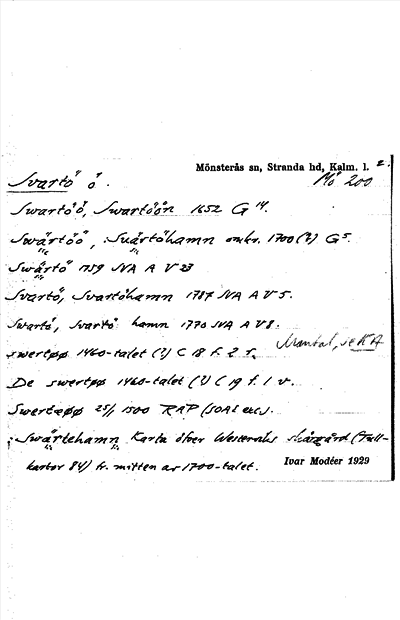 Mönsterås sn, Stranda hd, Kalm. l. 2.
Svartö ö. Mö 200
Swartöö, Swartöön 1652 G 14.
Swärtöö, Suärtöhamn omkr. 1700 (?) G 5.
Swärtö 1759 JVA A V 23
Svartö, Svartöhamn 1787 JVA A V 5.
Svartö, Svartö hamn 1770 JVA A V 8.
Mantal, se KA
swertøø 1460-talet (?) C 18 f. 2 r.
De swertøø 1460-talet (?) C 19 f. 1 v.
Swertæøø 25/11 1500 RAP (SOÄ2 exc.).
Swärtehamn Karta öfver Westerviks skärgård (Tull-
kartor 84) fr. mitten av 1700-talet.
Ivar Modéer 1929